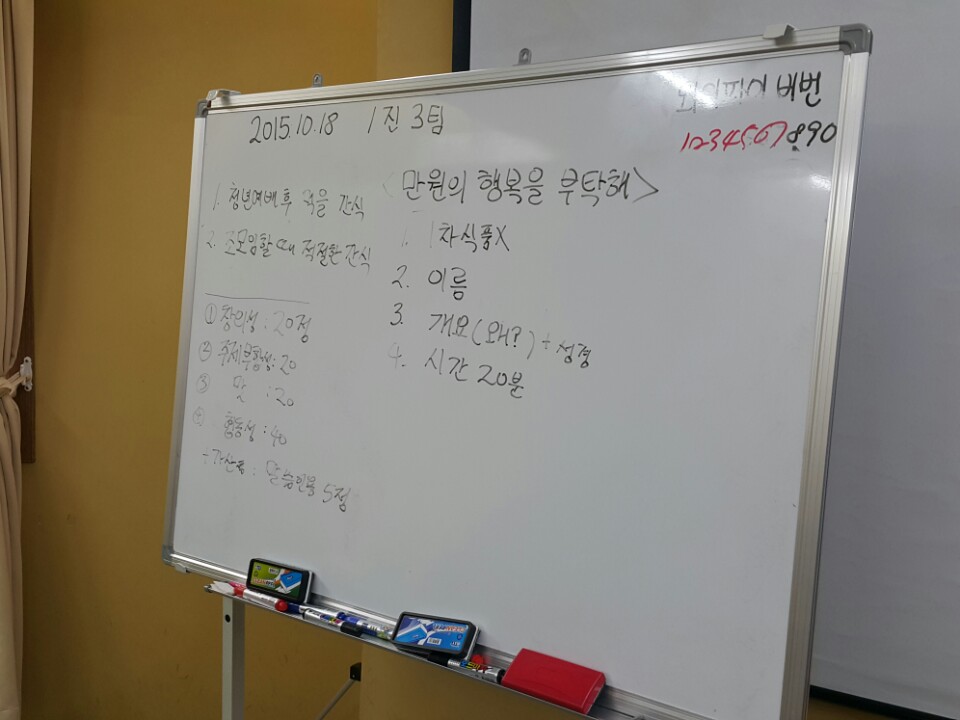 2015.10.18 1진 3팀
와이파이 비번
1234567890
<만원의 행복을 부탁해>
1. 청년예배 후 먹을 간식
2. 조모임할 때 적절한 간식
① 창의성 : 20점
② 주제부합성 : 20
③ 맛 : 20
④ 협동성 : 40
+가산점 : 말씀인용 5점
1. 1차식품X
2. 이름
3. 개요(왜?) + 성경
4. 시간 20분